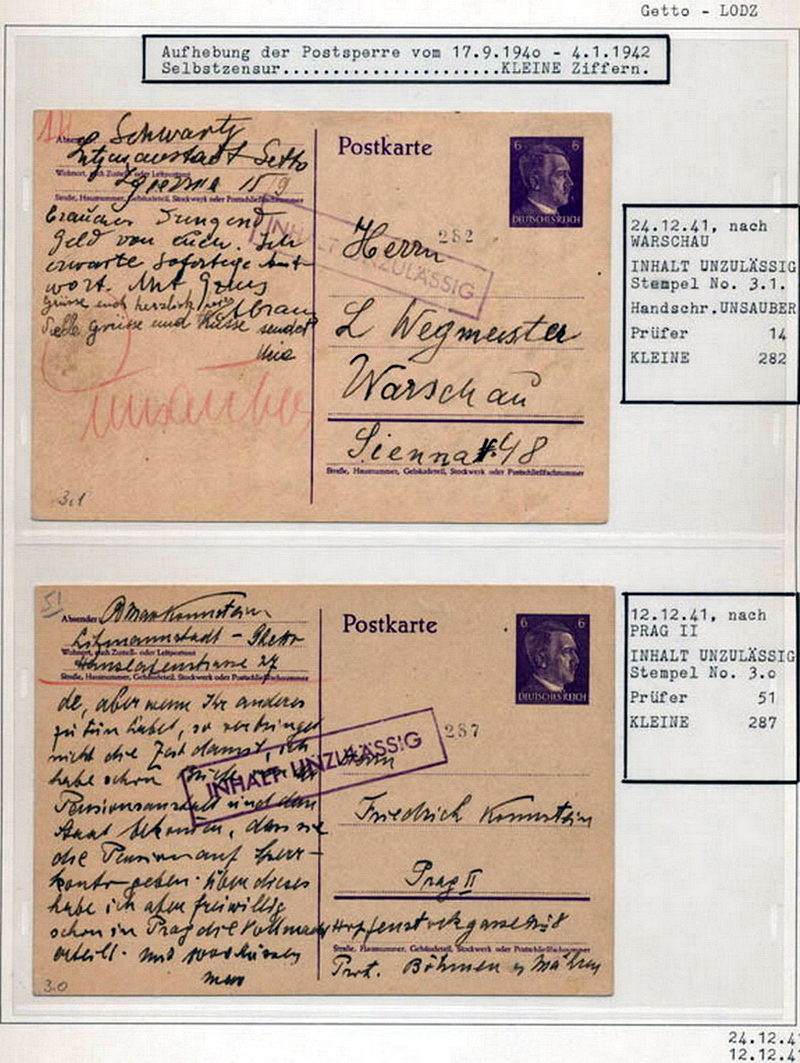 Getto - LODZ
Aufhebung der Postsperre vom 17.9.194o - 4.1.1942
Selbstzensur......................KLEINE Ziffern.
Schwartz
Litzmannstadt Getto
Wohnort, auch Zustell- oder Leitpostamt
15/9
Straße, Hausnummer, Gebäudeteil, Stockwerk oder Postschließfachnummer
brauchen Dringend
Geld von Euch. Ich
erwarte Sofortege Ant-
wort. Mit Gruss
Grüsse euch herzlich
Abram
Viele Grüsse und Küsse sendet
Mia
unsauber
3.1
Postkarte
6 6
DEUTSCHES REICH
282
INHALT UNZULÄSSIG
Herrn
L Wegmeister
Warschau
Sienna 48
Straße, Hausnummer, Gebäudeteil, Stockwerk oder Postschließfachnummer
24.12.41, nach
WARSCHAU
INHALT UNZULÄSSIG
Stempel No. 3.1.
Handschr.UNSAUBER
Prüfer 14
KLEINE 282
51
Absender:
Litzmannstadt - Ghetto
Wohnort, auch Zustell- oder Leitpostamt
27
Straße, Hausnummer, Gebäudeteil, Stockwerk oder Postschließfachnummer
de, aber wenn Ihr anderes
zu tun habet, so verbringet
nicht die Zeit damit, ich
habe schon
Pensionsanstalt und den
Staat
die Pension auf Sperr-
konto geben. Über dieses
habe ich aber freiwillig
schon in Prag die Vollmacht
erteilt. und
man
3.0
Postkarte
6 6
DEUTSCHES REICH
287
INHALT UNZULÄSSIG
Herrn
Friedrich Kornstein
Prag II
Hopfenstockgasse № 8
Straße, Hausnummer, Gebäudeteil, Stockwerk oder Postschließfachnummer
Prot. Böhmen u Mähren
12.12.41, nach
PRAG II
INHALT UNZULÄSSIG
Stempel No. 3.o
Prüfer 51
KLEINE 287
24.12.4
12.12.4